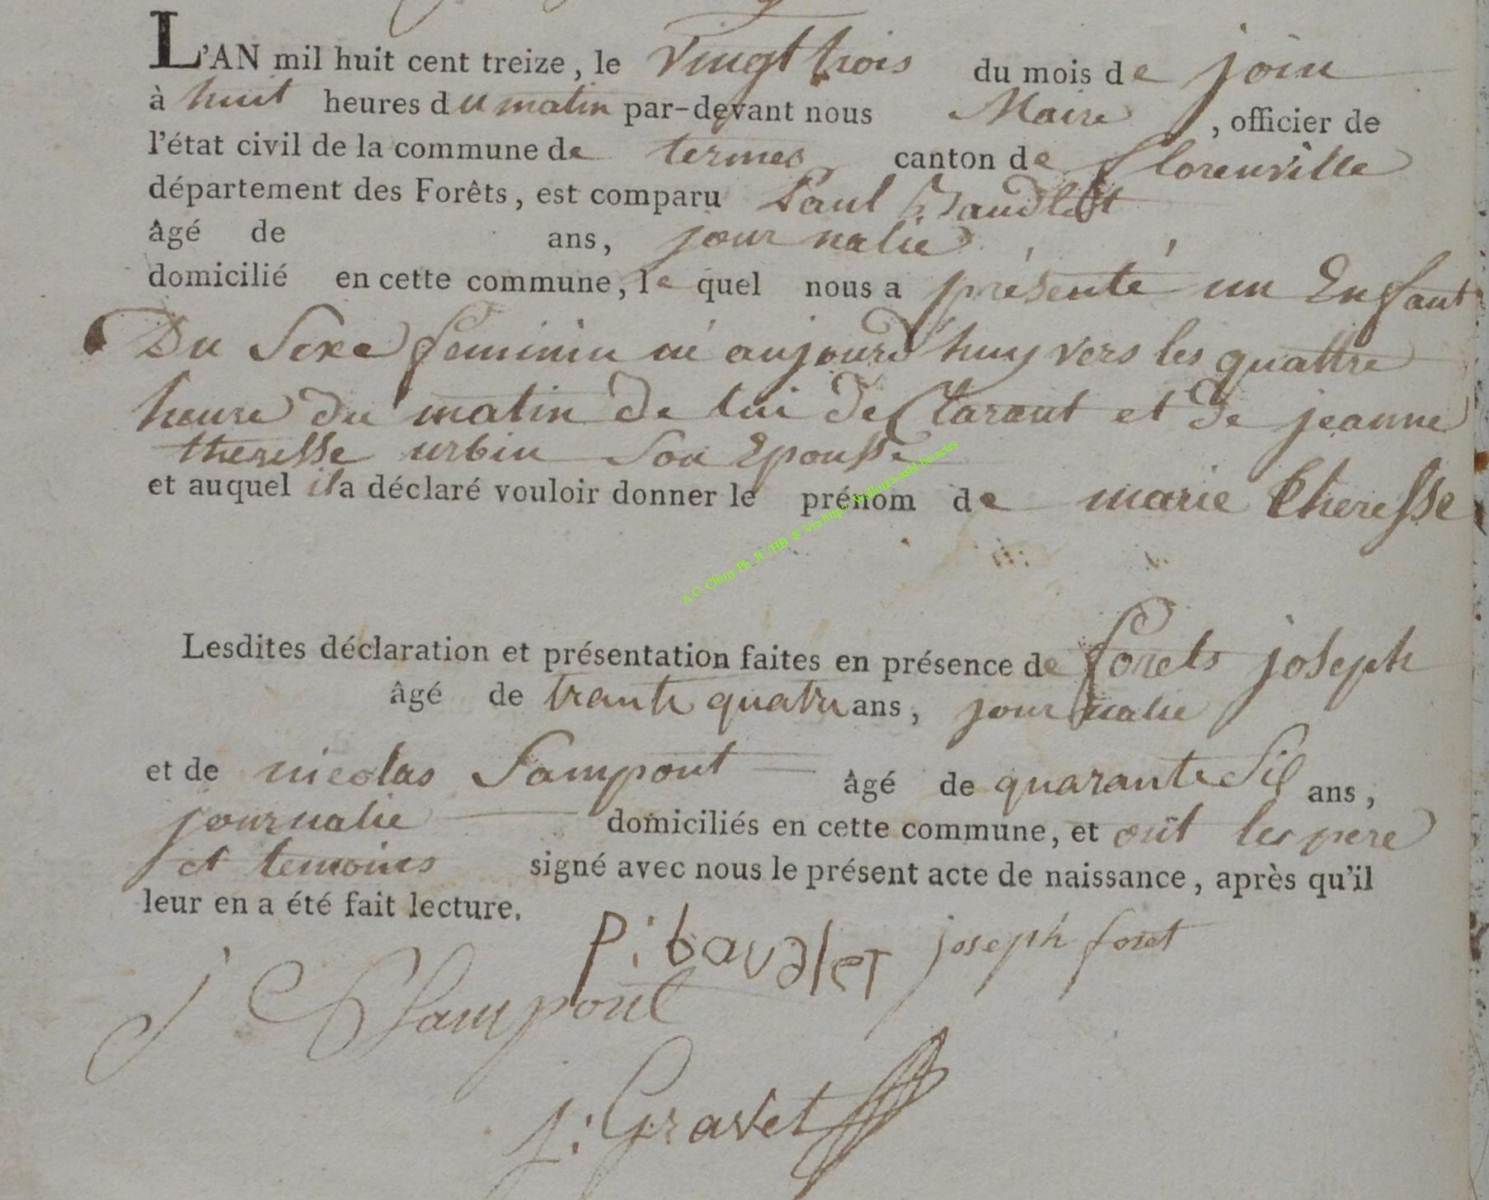 L'AN mil huit cent treize, le vingt trois du mois de join
à huit heures du matin par-devant nous Maire, officier de
l'état civil de la commune de termes canton de florenville
département des Forêts, est comparu Paul Baudlet
âgé de ans, journalie
domicilié en cette commune, le quel nous a présenté un Enfant
Du Sexe feminin né aujourd'huy vers les quattre
heure du matin de lui declarant et de jeanne
theresse urbin Son Epousse
et auquel il a déclaré vouloir donner le prénom de marie theresse
Lesdites déclaration et présentation faites en présence de forets joseph
âgé de trante quatre ans, journalie
et de nicolas Sampont âgé de quarante Sis ans,
journalie domiciliés en cette commune, et ont les pere
et temoins signé avec nous le présent acte de naissance, après qu'il
leur en a été fait lecture.
P: bavdlet joseph foret
Sampont
j: Gravet